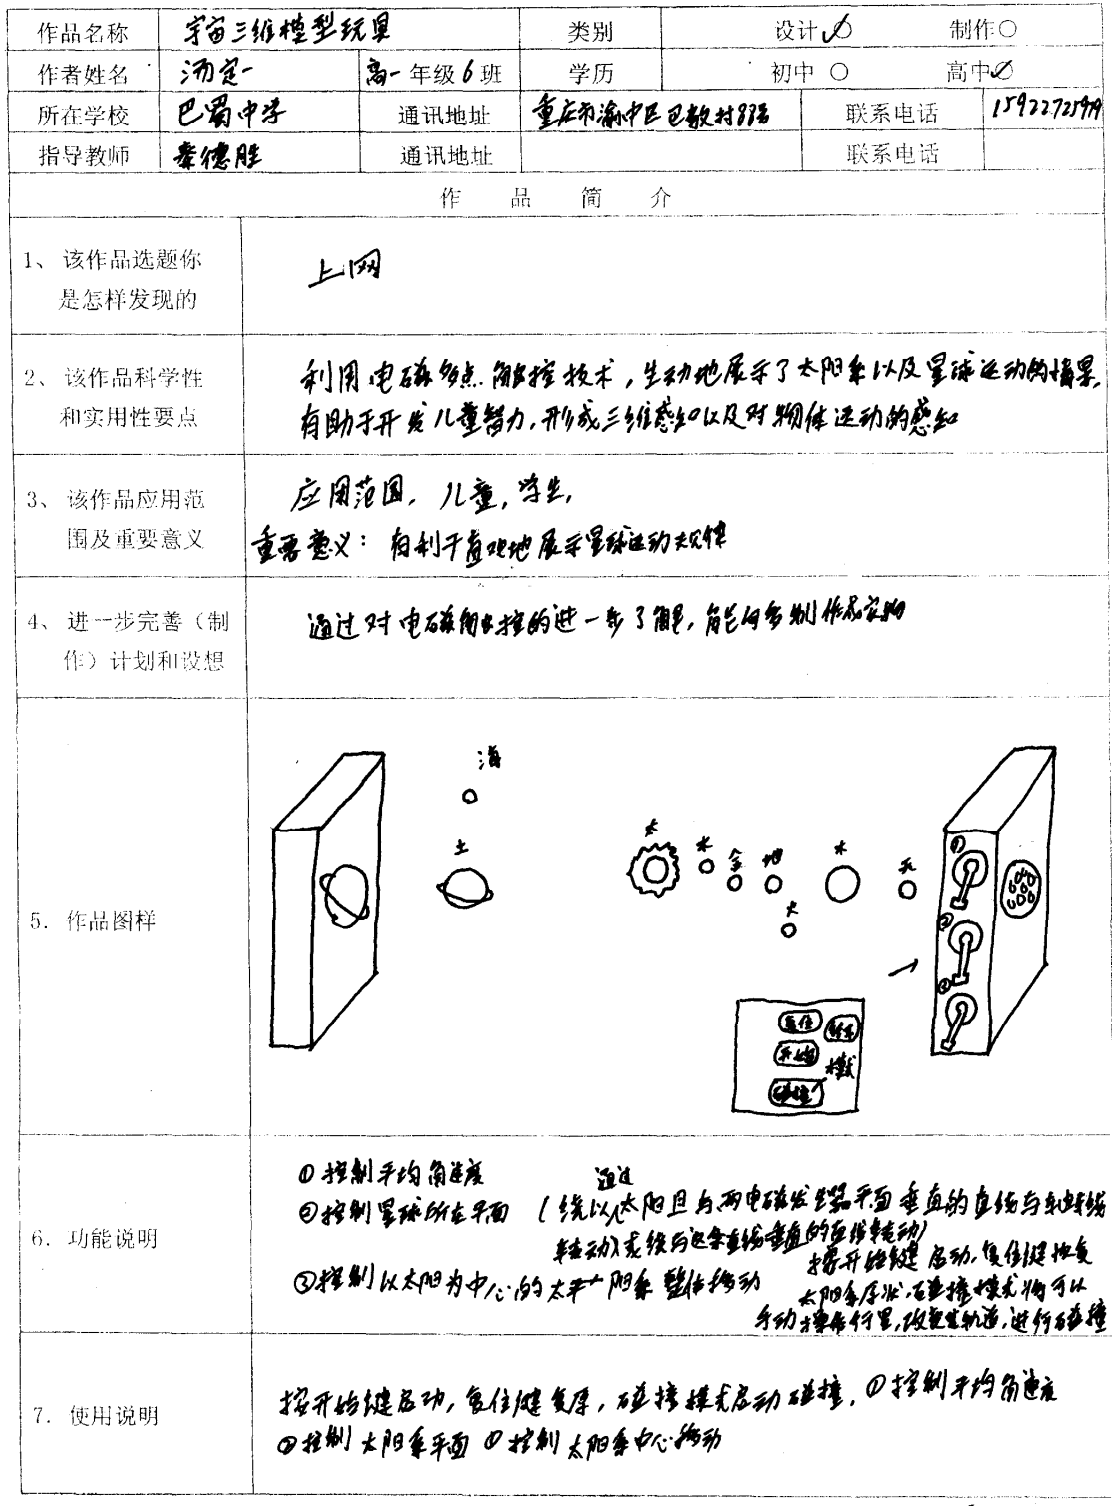 作品名称 宇宙三维模型玩具 类别 设计 制作
作者姓名 汤定一 高一年级6班 学历 初中 高中
所在学校 巴蜀中学 通讯地址 重庆市渝中区巴教村88号 联系电话
指导教师 秦德胜 通讯地址 联系电话
作品简介
1、该作品选题你
是怎样发现的
上网
2、该作品科学性
和实用性要点
利用电磁多点触控技术，生动地展示了太阳系以及星球运动的情景，
有助于开发儿童智力，形成三维感知以及对物体运动的感知
3、该作品应用范
围及重要意义
应用范围，儿童，学生，
重要意义：有利于直观地展示星球运动规律
4、进一步完善（制
作）计划和设想
通过对电磁触控的进一步了解，能够制作成实物
5．作品图样
海
土
太 水 金 地 木 天
火
① ② ③
复位
开始
碰撞
模式
6．功能说明
①控制平均角速度
②控制星球所在平面（绕以通过太阳且与两电磁发生器平面垂直的直线与轴线
转动）或绕与这条直线垂直的直线转动）
③控制以太阳为中心的太阳系整体移动
按开始键启动，复位键恢复
太阳系原状，碰撞模式将可以
手动操作行星，改变其轨道，进行碰撞
7．使用说明
按开始键启动，复位键复原，碰撞模式启动碰撞，①控制平均角速度
②控制太阳系平面 ③控制太阳系中心移动